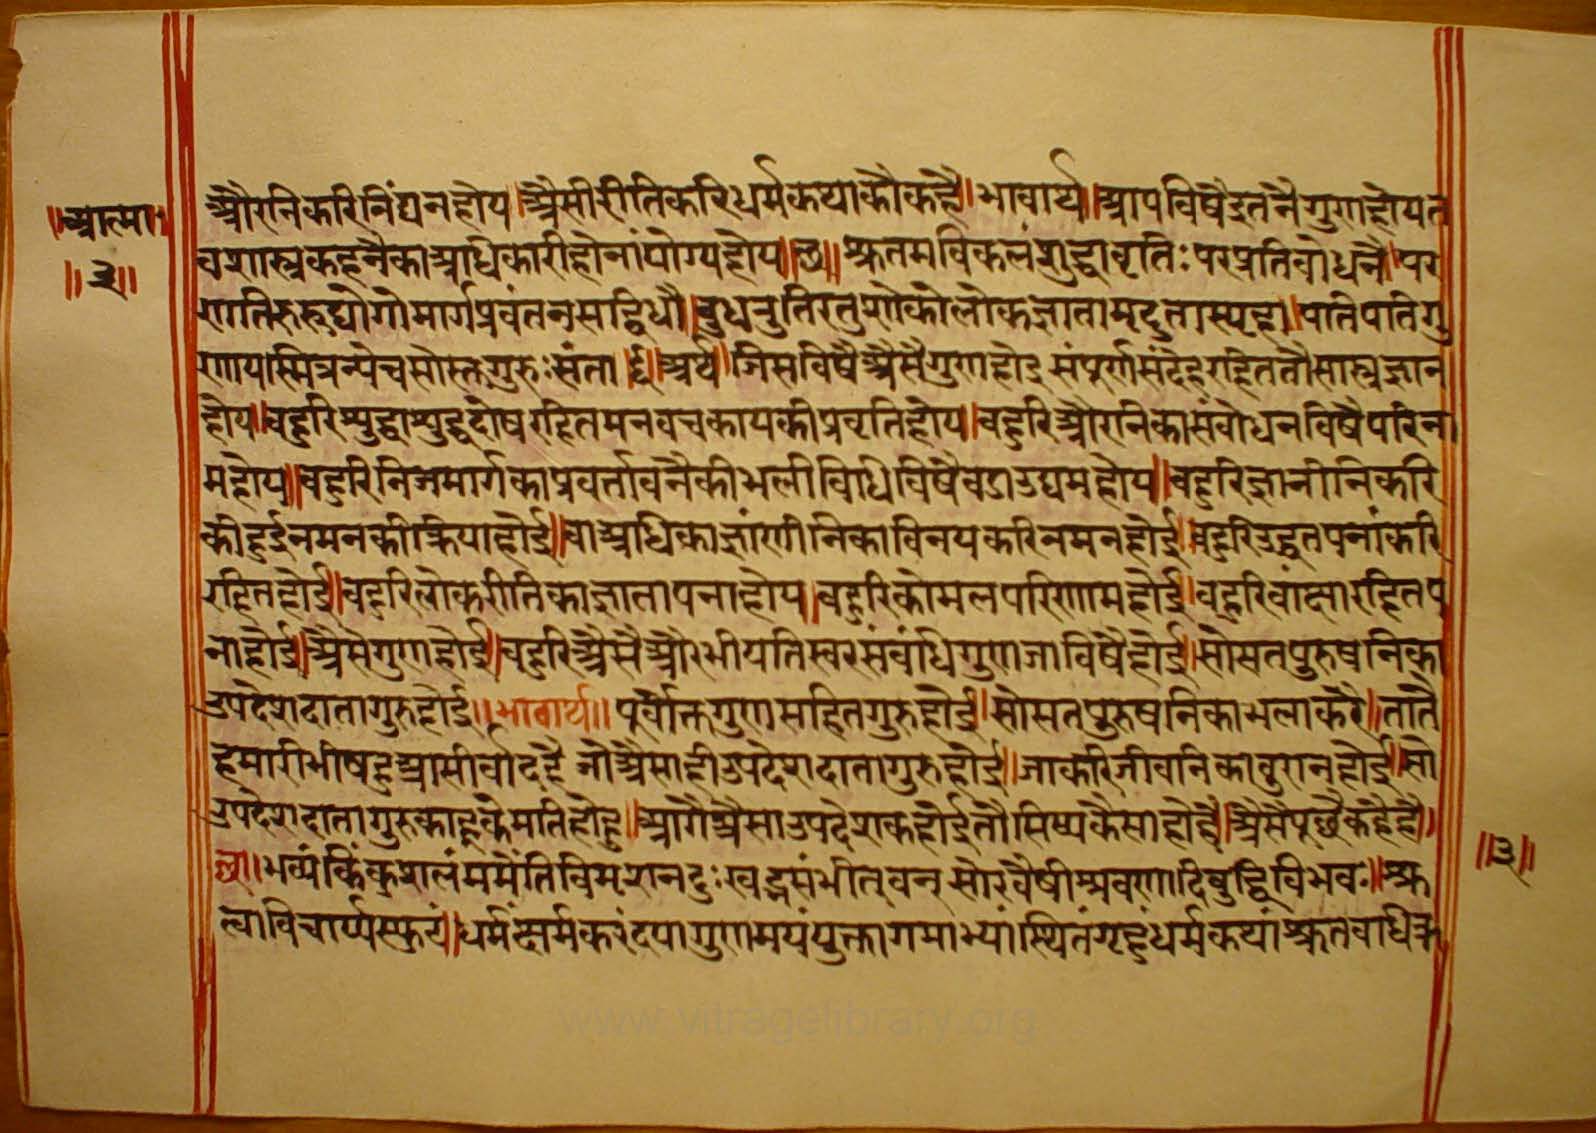 ॥आत्मा॥
॥३॥
औरनिकरिनिंद्यनहोय।अैसीरीतिकरिधर्मकथाकौकहै।भावार्थ॥आपविषैइतनैगुणहोयत
वशास्त्रकहनैकाअधिकारीहोनांयोग्यहोय॥छ॥श्रुतमविकलंशुद्धावृतिःपरप्रतिवोधनै।पर
णतिरुरुद्योगोमार्गप्रवंतनसद्विधौ।वुधनुतिरनु लोकज्ञातामृदुतास्पृहा।यतिपतिगु
णायस्मिन्नन्येचसोस्तुगुरुःसंता।६।अर्थ।जिसविषैअैसैगुणहोइसंपूर्णसंदेहरहिततौसास्त्रज्ञान
होय।वहुरिशुद्धाशुद्धदोषरहितमनवचकायकीप्रवृतिहोय।वहुरिऔरनिकासंवोधनविषैपरिन
महोय॥वहुरिनिजमार्गकाप्रवर्त्तावनैकीभलीविधिविषैवडाउद्यमहोय।वहुरिज्ञानीनिकरि
कीहुईनमनकीक्रियाहोई।वाअधिकाज्ञांणीनिकाविनयकरिनमनहोई।वहुरिउद्धतपनांकरि
रहितहोई।वहुरिलोकरीतिकाज्ञातापनाहोय।वहुरिकोमलपरिणामहोई।वहुरिवांक्षारहितप
नाहोई।अैसेगुणहोई।वहुरिअैसैऔरभीयतिस्वरसंवंधिगुणजाविषैहोई।सोसतपुरुषनिका
उपदेशदातागुरुहोई॥भावार्थ॥पूर्वोक्तगुणसहितगुरुहोई।सोसतपुरुषनिकाभलाकरै।तातै
हमारीभीषहुआसीर्वादहै जोअैसाहीउपदेशदातागुरुहोई।जाकरिजीवनिकावुरानहोई।सो
उपदेशदातागुरुकाहूकैमतिहोहु॥आगैअैसाउपदेशकहोईतौसिष्यकैसाहोहै।अैसैपूछैकहैहै।
छ॥भव्यंकिंकुशलंममेतिविमृशनदुःखद्भृसंभीतवन् सोखैषीश्रवणादिवुद्धिविभवः॥श्रु
त्वाविचार्य्यस्फुटयं।धर्मंशर्मकरंदयागुणमयंयुक्तागमाभ्यांस्थितंगृह्नंधर्मकथांश्रुतवाधिकृ
॥३॥
www.vitragelibrary.org